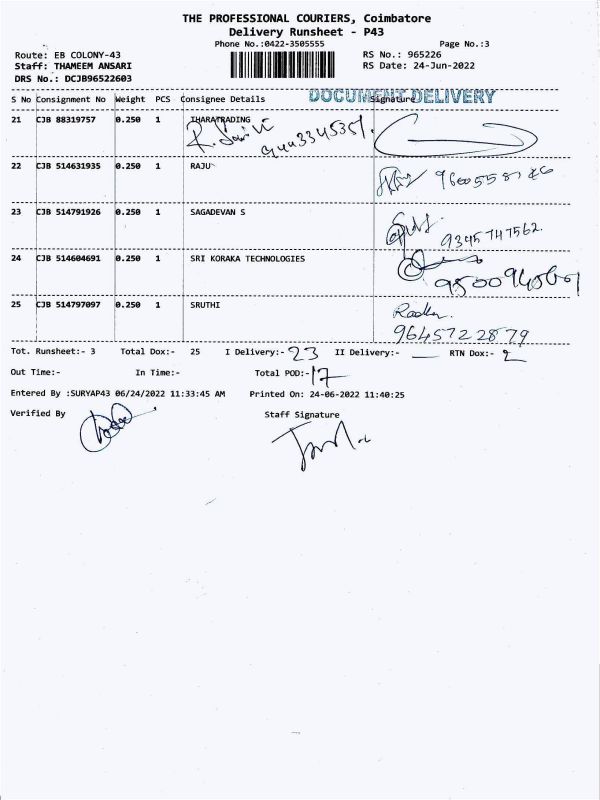 THE PROFESSIONAL COURIERS, Coimbatore
Delivery Runsheet - P43
Phone No.:0422-3505555 Page No.:3
Route: EB COLONY-43 RS No.: 965226
Staff: THAMEEM ANSARI RS Date: 24-Jun-2022
DRS No.: DCJB96522603
DOCUMENT DELIVERY
S No Consignment No Weight PCS Consignee Details Signature
21 CJB 88319757 0.250 1 THARATRADING
22 CJB 514631935 0.250 1 RAJU
23 CJB 514791926 0.250 1 SAGADEVAN S
9345747562.
24 CJB 514604691 0.250 1 SRI KORAKA TECHNOLOGIES
25 CJB 514797097 0.250 1 SRUTHI
9645722879
Tot. Runsheet:- 3 Total Dox:- 25 I Delivery:- 23 II Delivery:- — RTN Dox:- 2
Out Time:- In Time:- Total POD:- 17
Entered By :SURYAP43 06/24/2022 11:33:45 AM Printed On: 24-06-2022 11:40:25
Verified By Staff Signature